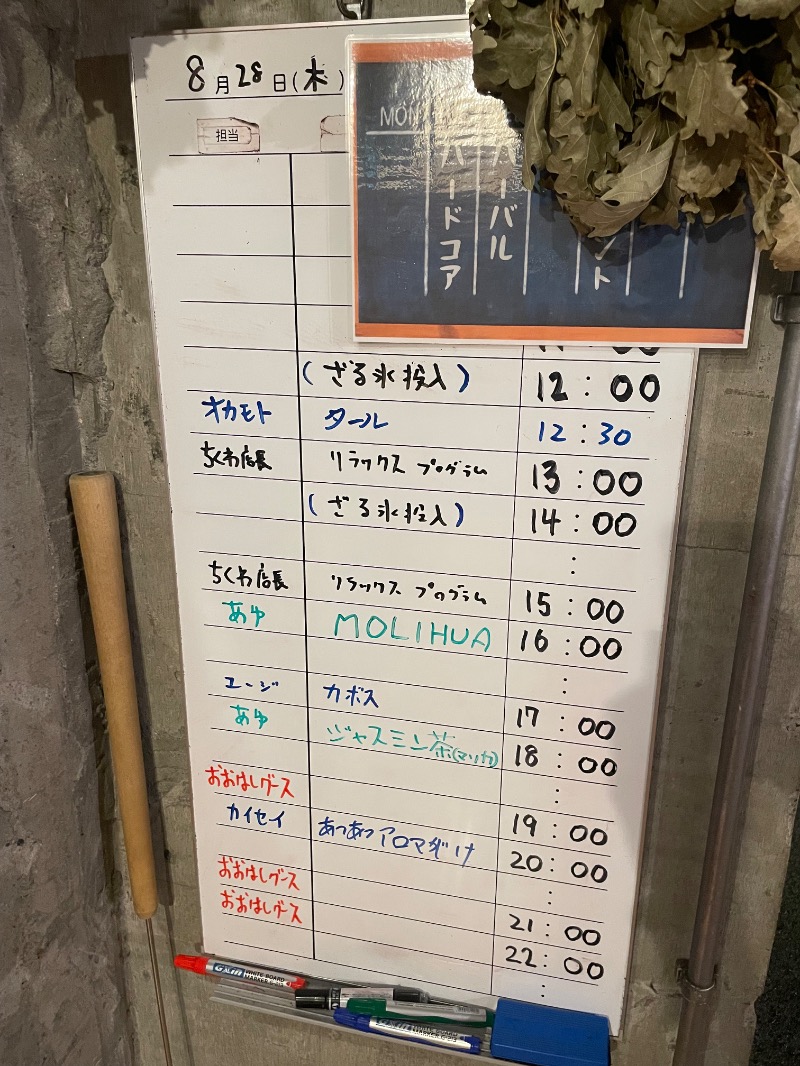 8月28日(木)
担当
MON
ハーバル
ハードコア
ント
(ざる氷投入) 12:00
オカモト タール 12:30
ちくわ店長 リラックス プログラム 13:00
(ざる氷投入) 14:00
:
ちくわ店長 リラックス プログラム 15:00
あゆ MOLIHUA 16:00
:
ユージ カボス 17:00
あゆ ジャスミン茶(マツリカ) 18:00
:
おおはしグース 19:00
カイセイ あつあつアロマだけ 20:00
:
おおはしグース 21:00
おおはしグース 22:00
:
WHITE BOARD
MARKER